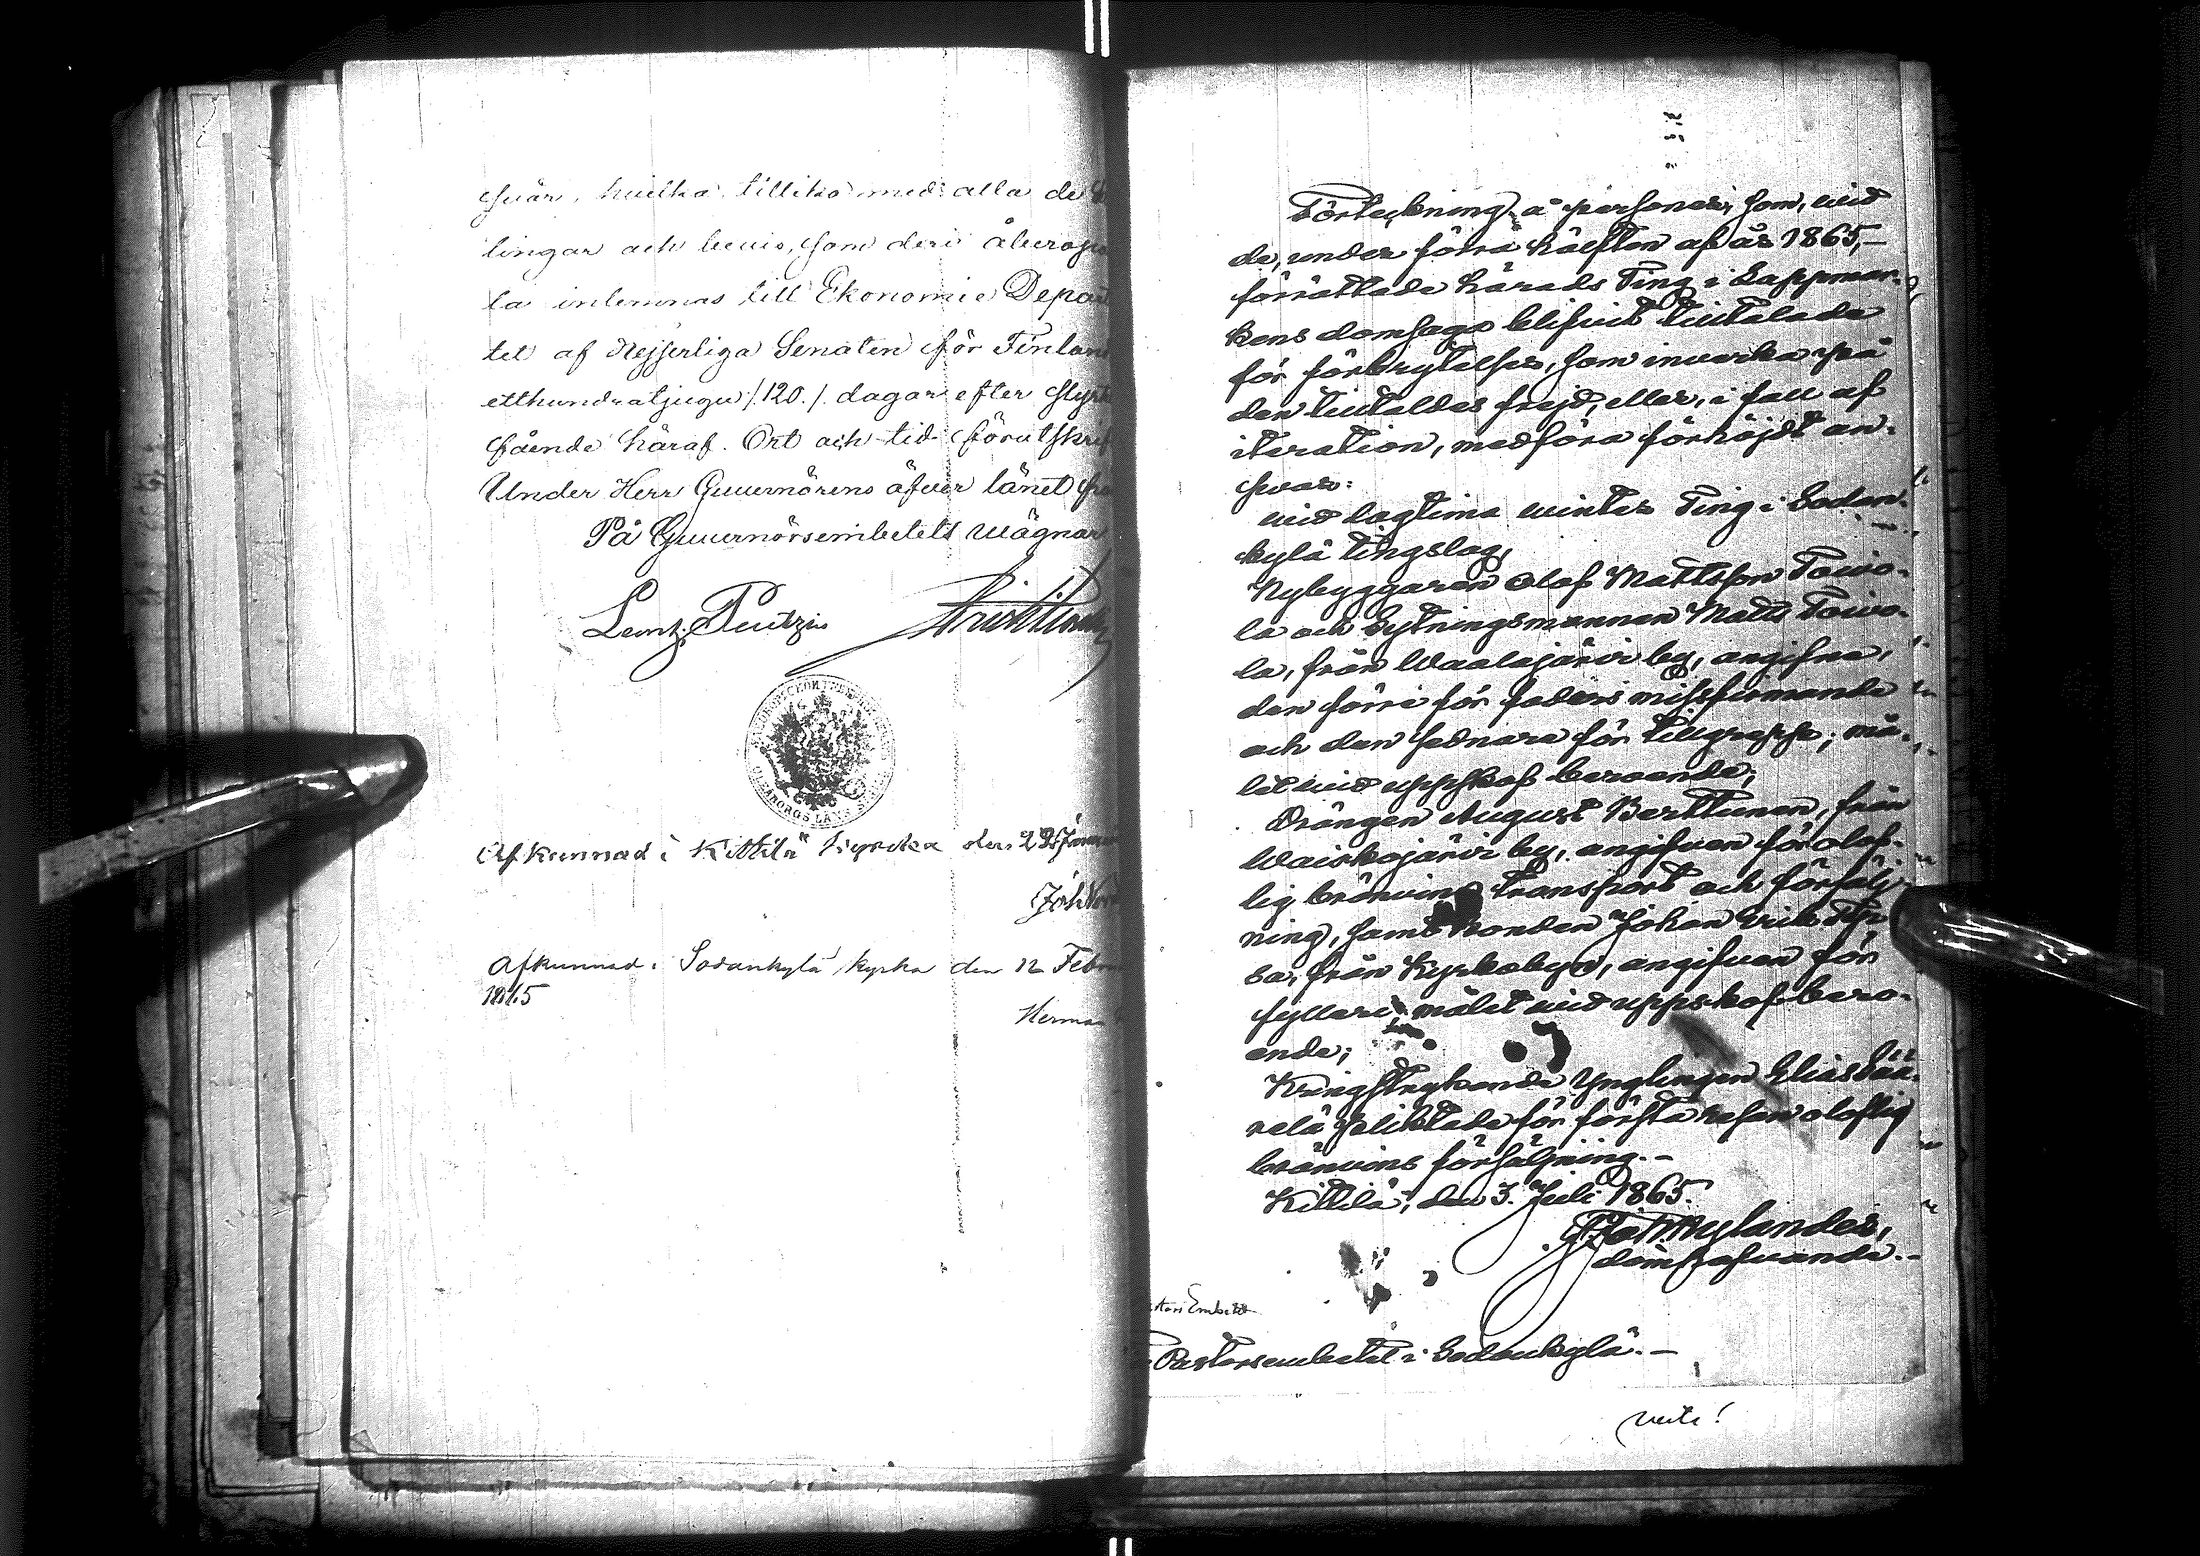 svar, hvilka tillika med alla de
lingar och bevis, som deri åberopa
la inlemnas till Ekonomie Depart
tet af Kejserliga Senaten för Finlan
etthundratjugu /.120./ dagar efter
fående häraf. Ort och tid förutskrif
Under Herr Guvernörens öfver länet
På Guvernörsembetets vägnar
Afkunnad i Kittilä kyrka den
Afkunnad i Sodankylä kyrka den 12 Febr
1865
Herman
Förteckning å personer, som, vid
de, under förra hälften af år 1865,
förrättade Härads Ting i Lappmar-
kens domsaga blifvit tilltalade
för förbrytelser, som inverka på
den tilltaldes frejd, eller, i fall af
iteration, medföra förhöjdt an-
svar:
vid lagtima vinter Ting i Sodan-
kylä tingslag,
Nybyggaren Olof Mattsson Toivo-
la och Sytningsmannen Matts Toivo-
la, från Waalajärvi by, angifne,
den förre för faders missfirmande
och den sednare för tillgrepp; må-
let vid uppskof beroende;
Drängen August Berttunen, från
Waiskojärvi by, angifven för olof-
lig bränvins transport och försälj-
ning, samt bonden Johan Erik
sa, från Kyrkobyn, angifven för
fylleri, målet vid uppskof bero-
ende;
Kringstrykande Ynglingen Elias
relä sakfälld för första resan oloflig
bränvins försäljning.-
Kittilä, den 3. Juli 1865.
Nylander,
domhafvande.-
Pastorsembetet i Sodankylä.-
vert!